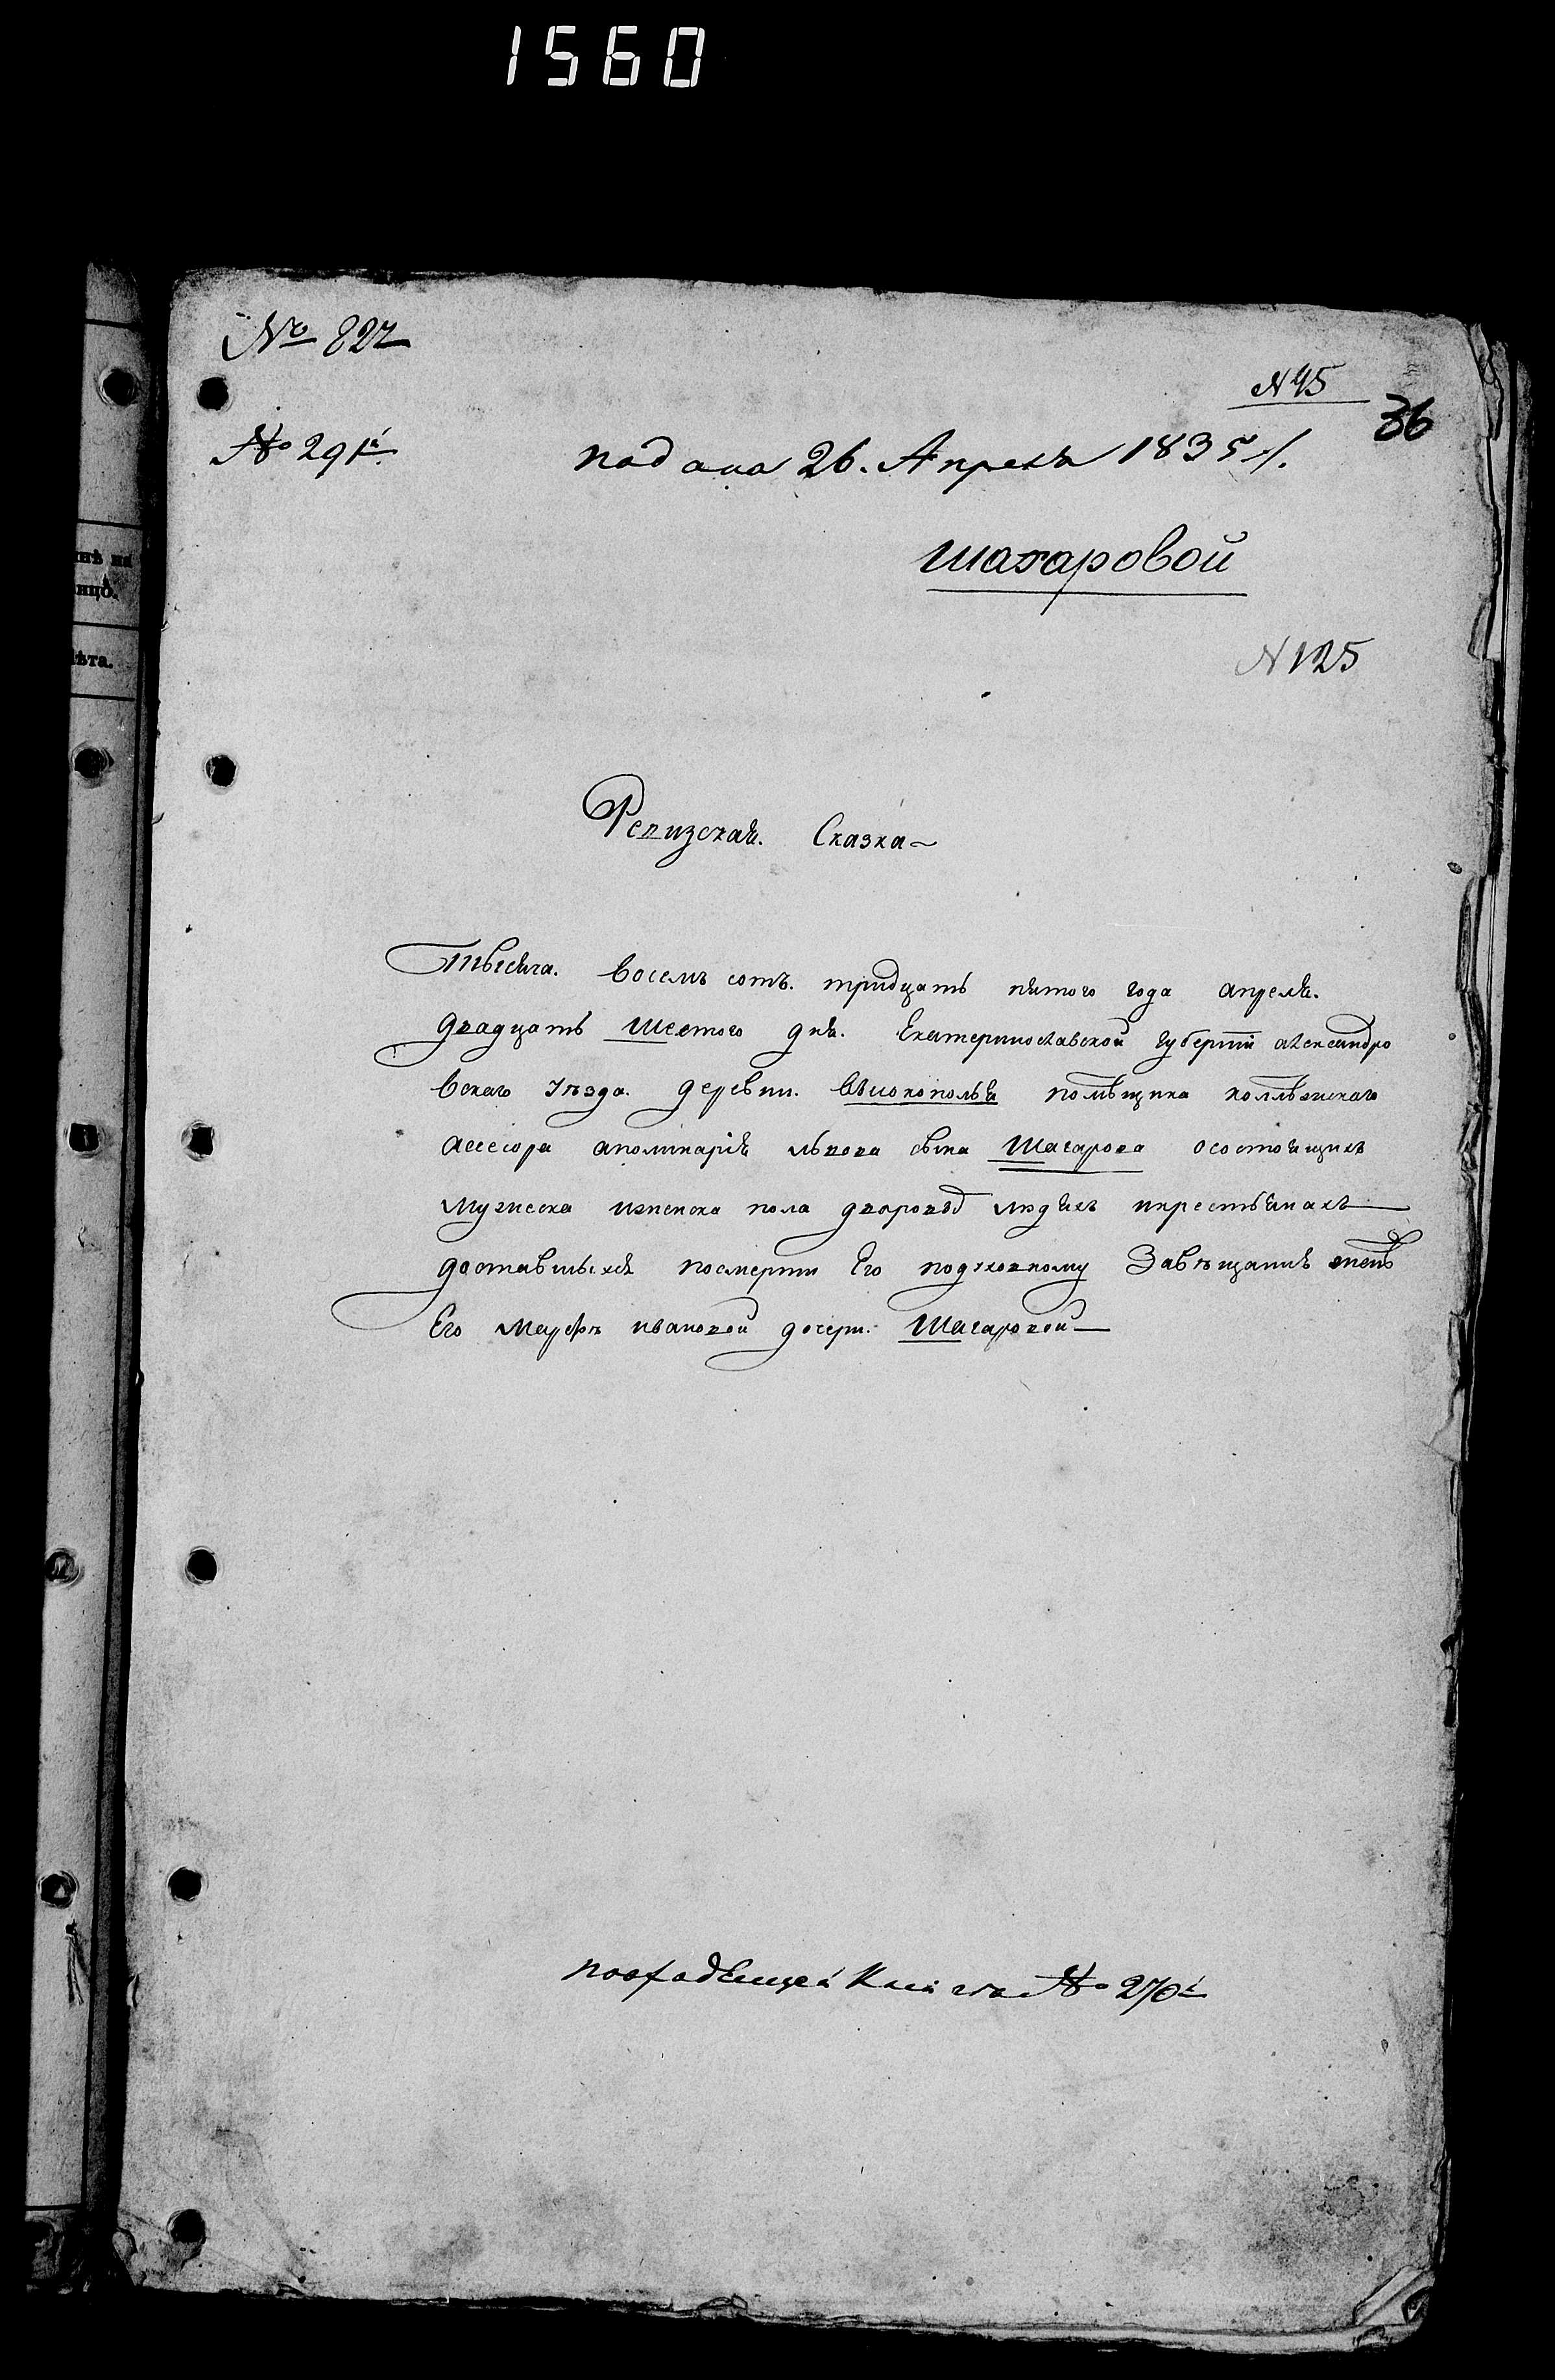 1560
№ 827
N 45
36
№ 291й
подана 26. Апреля 1835 /.
шахаровой
N 125
нѣ на
нцѣ.
ѣта.
Ревизская. Сказка ~
Тысяча. восемъ сотъ. тридцать пятого года апреля.
двадцать шестого дня. Екатеринославской губернии александро
вскаго уѣзда. деревни. высокополья помѣщика коллежскаго
асессора аполинария львова сына Шагарова осостоящихъ
мужеска иженска пола дворовых людяхъ икрестьянахъ
доставшыхся посмерти Его подуховному Завѣщанию женѣ
Его Марфѣ ивановой дочери. Шагаровой —
повходящей Книги № 270й